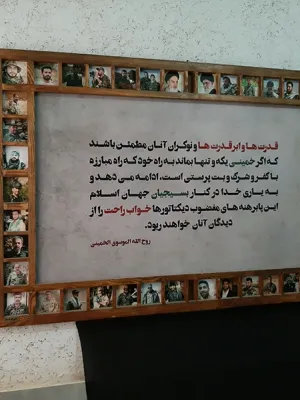 قدرت ها و ابرقدرت ها و نوکران آنان مطمئن باشند
که اگر خمینی یکه و تنها بماند به راه خود که راه مبارزه
با کفر و شرک و بت پرستی است، ادامه می دهد و
به یاری خدا در کنار بسیجیان جهان اسلام
این پابرهنه های مغضوب دیکتاتورها خواب راحت را از
دیدگان آنان خواهند ربود.
روح الله الموسوی الخمینی